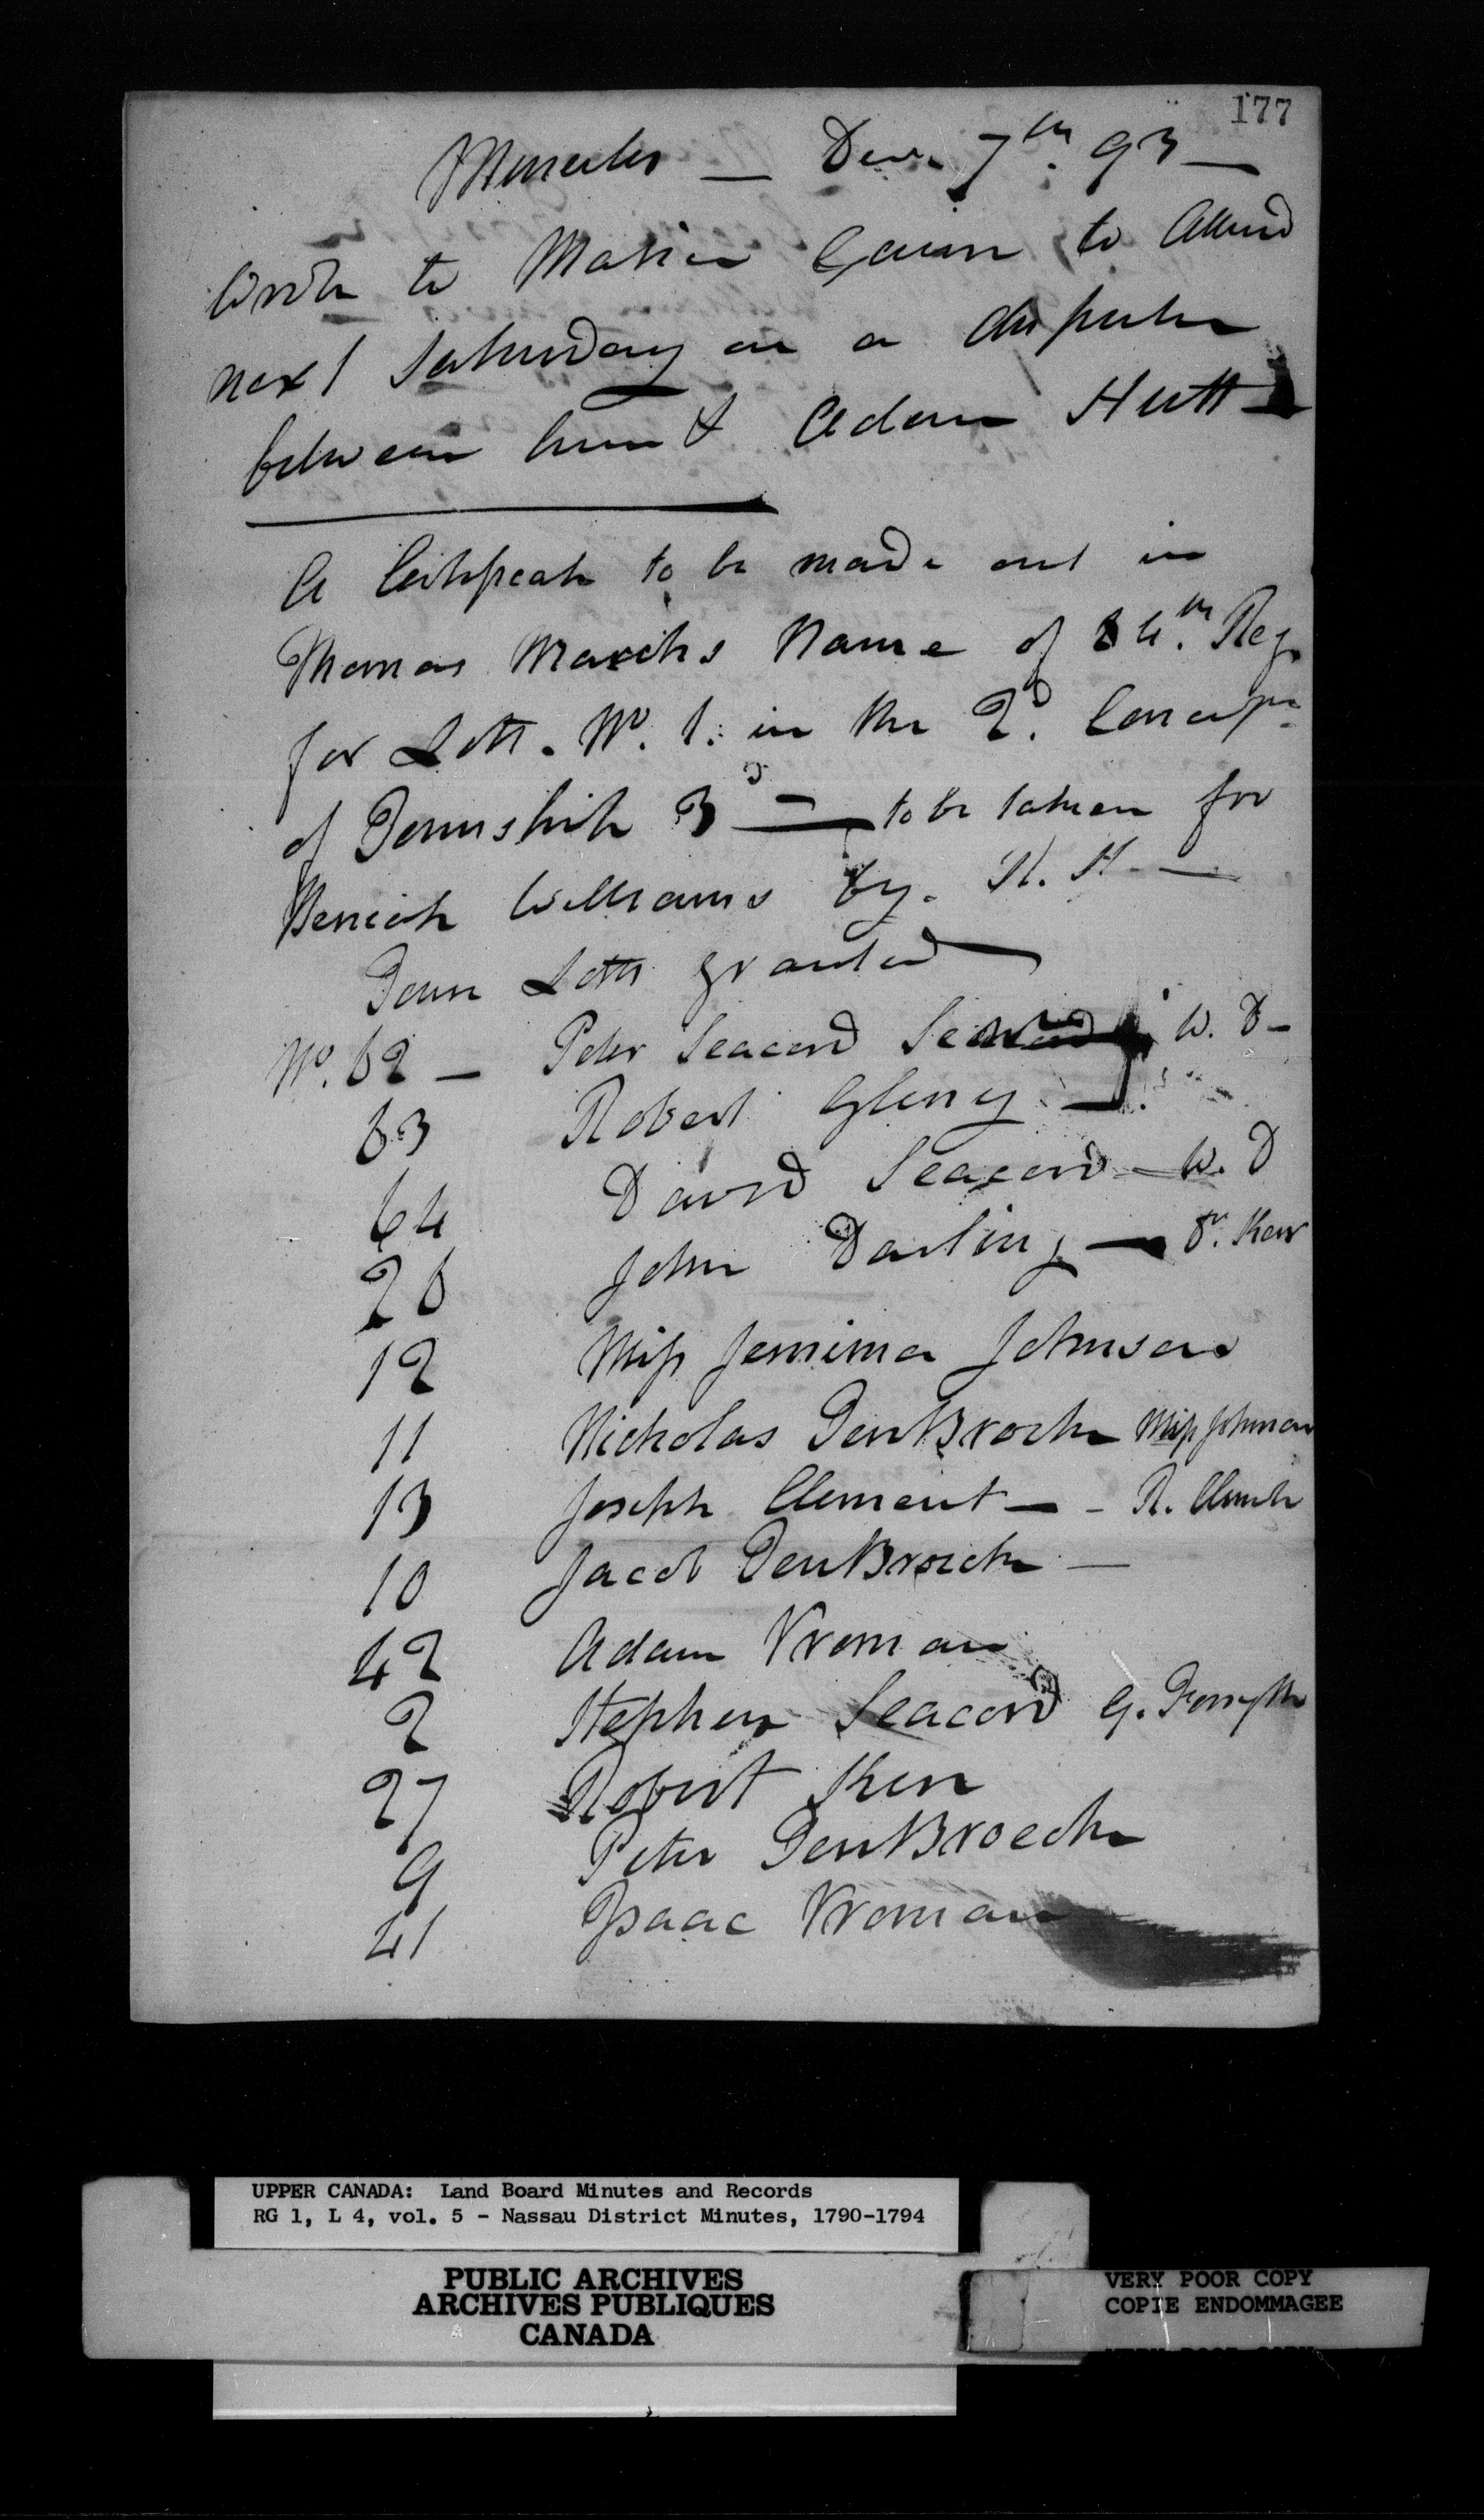 177
Minutes — Decr. 7th. 93 —
Write to to Attend
next Saturday on a dispute
between him & Adam Hutt
A Certificate to be made out in
Thomas Name of 84th. Reg.
for Lott. No. 1. in the 2d. Concess
of Township 3d — to be taken for
Williams by. —
Town Lotts granted
No. 62 — Peter Seacord W. D —
63 Robert
64 David Seacord — W. D
26 John Darling — Dr. Kerr
12 Miss Jemima Johnson
11 Nicholas TenBroeck Miss Johnson
13 Joseph Clement — - R. Clench
10 Jacob TenBroeck —
42 Adam Vroman
2 Stephen Seacord G. Forsyth
27 Robert Kerr
9 Peter TenBroeck
41 Isaac Vroman
UPPER CANADA: Land Board Minutes and Records
RG 1, L 4, vol. 5 - Nassau District Minutes, 1790-1794
PUBLIC ARCHIVES
ARCHIVES PUBLIQUES
CANADA
VERY POOR COPY
COPIE ENDOMMAGEE